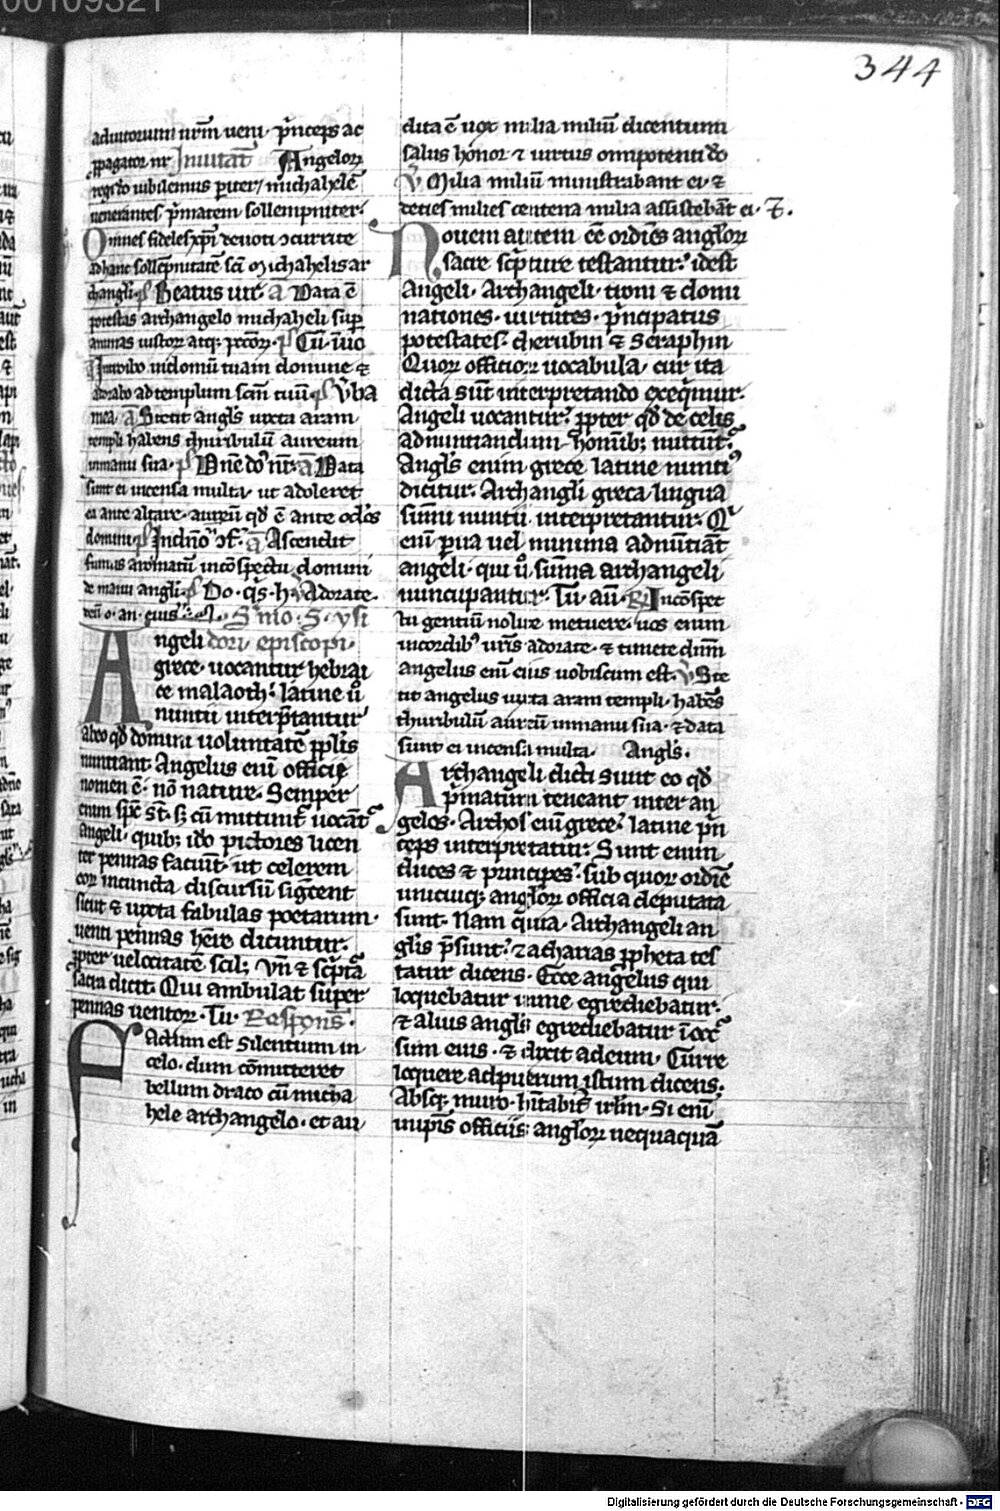 344
adiutorium nr̄m ueni · p̄nceps ac
ꝓpagator nr̄ Inuitat̄ Angeloꝝ
regi dō iubilemus pariter / michahelē
uenerantes p̄matem sollempniter ·
Omnes fideles xp̄i deuoti ɔcurrite
ad hanc sollēpnitatē sc̄i michahelis ar
chāngli · p̄s Beatus uir · a̅ Data ē
potestas archangelo michaheli sup̄
animas iustoꝝ atq; · p̄s Cū īuo
Introibo in domū tuam domine ⁊
adorabo ad templum sc̄m tuū p̄s Vba
mea · a̅ Stetit angl̄s iuxta aram
templi habens thuribulū aureum
in manu sua · p̄s Dn̄e dn̄s nr̄ · a̅ Data
sunt ei incensa multa · ut adoleret
ea ante altare · aureū qd̄ ē ante oclōs
domini p̄s In dn̄o ɔf · a̅ Ascendit
fumus aromatū in ɔspectu domini
de manu angli · p̄s Do · q̄s · h · v̄ Adorate
S'mo · S · ysi
Angeli dori · episcopi ·
grece · uocantur hebrai
ce malaoth · latine ū
nuntii interp̄tantur
ab eo qd̄ domini uoluntatē ppl̄is
nuntiant · Angelus eni̅ officii
nomen ē · nō nature · Semper
enim sp̄c st̄ · s; cū mittunt̄ uocant̄
angeli · quib; ido pictores licen
ter pennas faciūt · ut celerem
eoꝝ in cuncta discursū sigcent
sicut ⁊ iuxta fabulas poetarum ·
uenti pennas hēre dicuntur ·
ꝓpter uelocitatē scil; Vn̄ ⁊ sc̄ptā
sacra dicit · Qui ambulat super
pennas uentoꝝ · Tu · Respons̄ ·
Factum est silentium in
celo · dum cōmitteret
bellum draco cū micha
hele archangelo · et au
dita ē uox milia miliū dicentium
salus honor ⁊ uirtus omnipotenti dō
v̄ Milia miliū ministrabant ei · ⁊
decies milies centena milia assistebāt ei · T̄ .
Nouem autem eē ordīes angloꝝ
sacre sc̄pture testantur · idest
Angeli · Archangeli · troni ⁊ domi
nationes · uirtutes · p̄ncipatus
potestates · cherubin ⁊ Seraphin
Quoꝝ officioꝝ uocabula · cur ita
dicta sūt interpretando exeq̄mur ·
Angeli uocantur · ꝓpter qd̄ de celis
ad nuntiandum · homīb; mittūt̄ ·
Angl̄s enim grece latine nunti᾿
dicitur · Archangli greca lingua
sūmi nuntii interpretantur · Q̄
eni̅ parua uel minima adnūtiāt
angeli · qui ū sūma archangeli
nuncupantur · Tu · au̅ · R̷ In cōspec
tu gentiū nolite metuere · uos enim
in cordib᾿ ur̄is adorate · ⁊ timete dn̄m
angelus eni̅ eius uobiscum est · v̄ Ste
tit angelus iuxta aram templi · habēs
thuribulū aureū in manu sua · ⁊ data
sunt ei incensa multa · Angl̄s ·
Archangeli dicti sunt eo qd̄
p̄matum teneant inter an
gelos · Archos eni̅ grece · latine p̄n
ceps interpretatur · Sunt enim
duces ⁊ principes · sub quoꝝ ordīe
unicuiq; angloꝝ officia deputata
sunt · Nam quia · Archangeli an
gl̄is p̄sunt · zacharias ꝓpheta tes
tatur dicens · Ecce angelus qui
loquebatur in me egrediebatur ·
⁊ alius angls̄ egrediebatur ī occ̄
sum eius · ⁊ dixit ad eum · Curre
loquere ad puerum istum dicens ·
Absq; muro · hītabit̄ irl̄m · Si eni̅
in ip̄is officiis · angloꝝ nequaquā
Digitalisierung gefördert durch die Deutsche Forschungsgemeinschaft - DFG